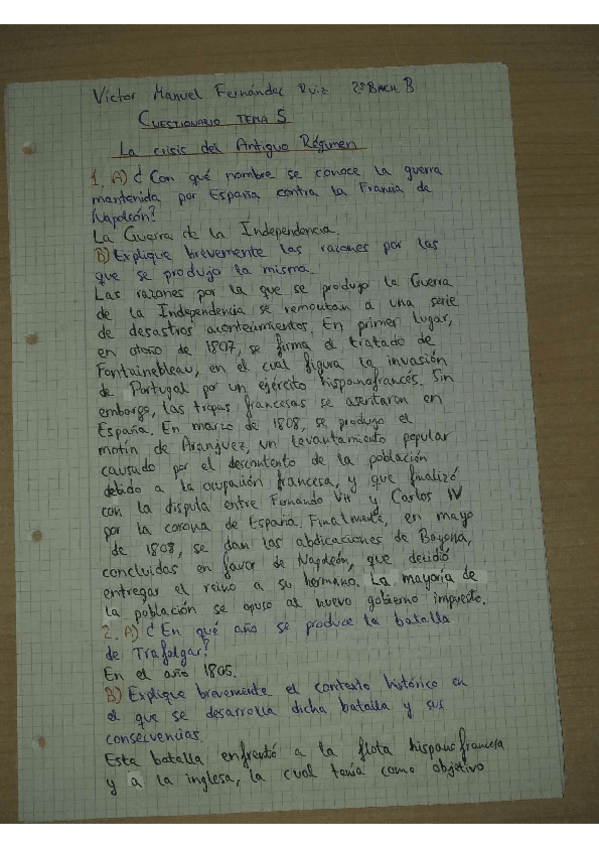 Víctor Manuel Fernández Ruiz 2ºBACH B
CUESTIONARIO TEMA 5
La crisis del Antiguo Régimen
1. A) ¿Con qué nombre se conoce la guerra
mantenida por España contra la Francia de
Napoleón?
La Guerra de la Independencia.
B) Explique brevemente las razones por las
que se produjo la misma.
Las razones por la que se produjo la Guerra
de la Independencia se remontan a una serie
de desastros acontecimientos. En primer lugar,
en otoño de 1807, se firma el tratado de
Fontainebleau, en el cual figura la invasión
de Portugal por un ejército hispanofrancés. Sin
embargo, las tropas francesas se asentaron en
España. En marzo de 1808, se produjo el
motín de Aranjuez, un levantamiento popular
causado por el descontento de la población
debido a la ocupación francesa, y que finalizó
con la disputa entre Fernando VII y Carlos IV
por la corona de España. Finalmente, en mayo
de 1808, se dan las abdicaciones de Bayona,
concluidas en favor de Napoleón, que decidió
entregar el reino a su hermano. La mayoría de
la población se opuso al nuevo gobierno impuesto.
2. A) ¿En qué año se produce la batalla
de Trafalgar?
En el año 1805.
B) Explique brevemente el contexto histórico en
el que se desarrolla dicha batalla y sus
consecuencias.
Esta batalla enfrentó a la flota hispanofrancesa
y a la inglesa, la cual tenía como objetivo